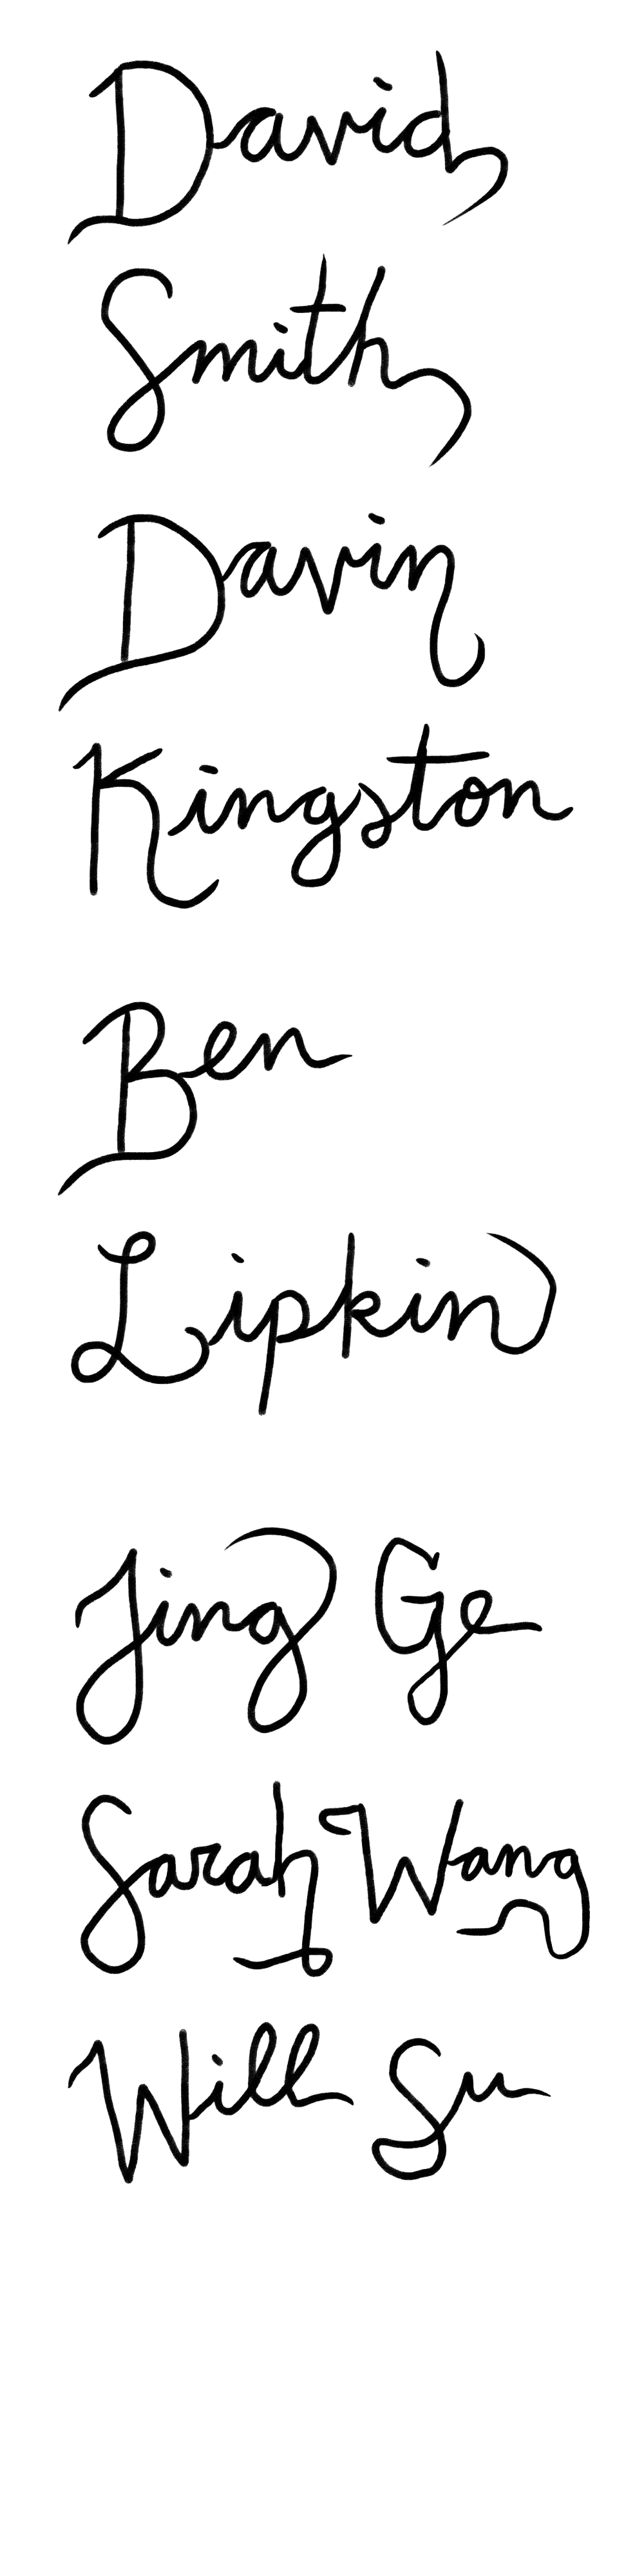 David
Smith
Davin
Kingston
Ben
Lipkin
Jing Ge
Sarah Wang
Will Su